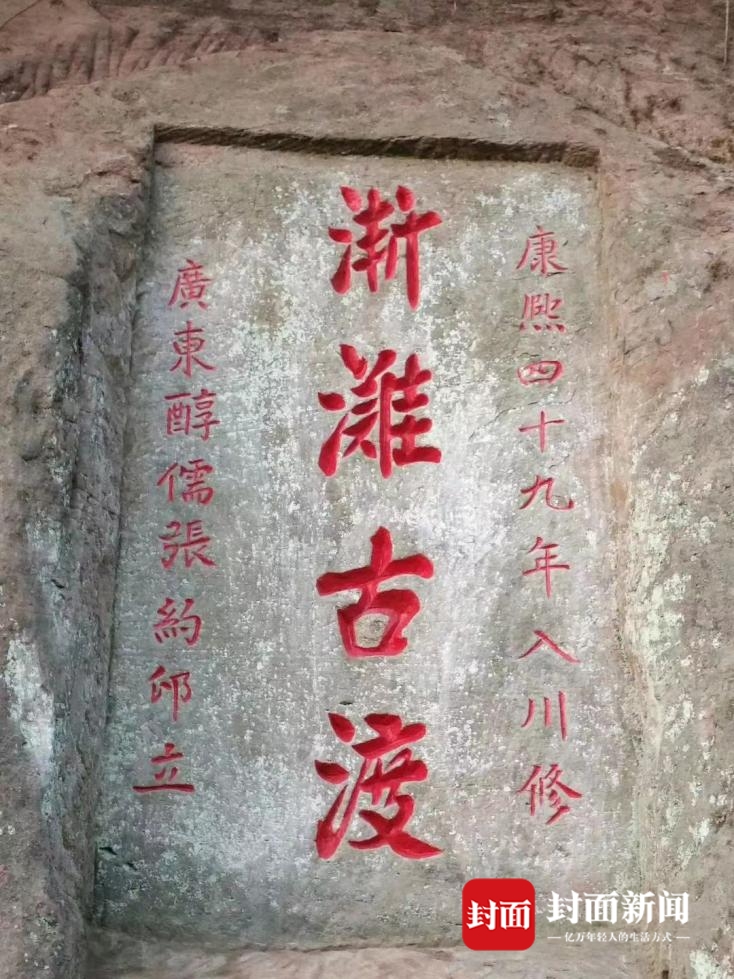 康熙四十九年入川修
漸滩古渡
廣東醇儒張約邱立
封面
封面新闻
亿万年轻人的生活方式